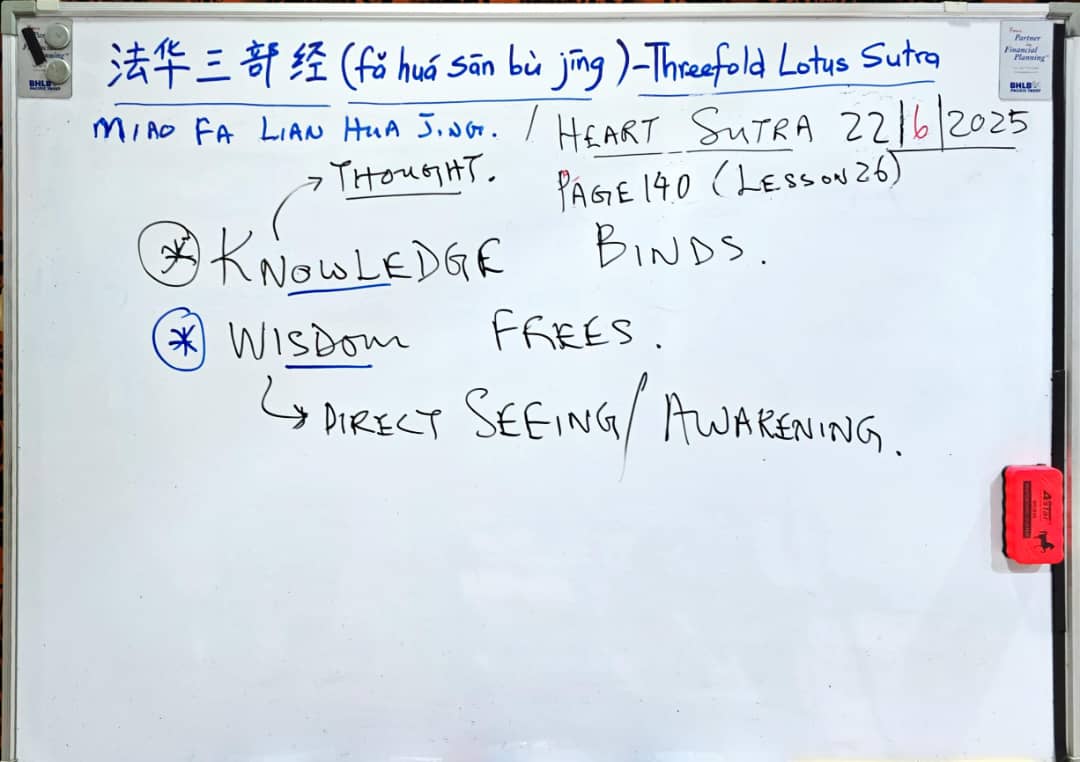 法华三部经 (fǎ huá sān bù jīng) - Threefold Lotus Sutra
MIAO FA LIAN HUA JING. / HEART SUTRA 22/6/2025
THOUGHT. PAGE 140 (LESSON 26)
* KNOWLEDGE BINDS.
* WISDOM FREES.
DIRECT SEEING / AWAKENING.
Partner
in
Financial
Planning
BHLB
PACIFIC TRUST
BHLB
PACIFIC TRUST